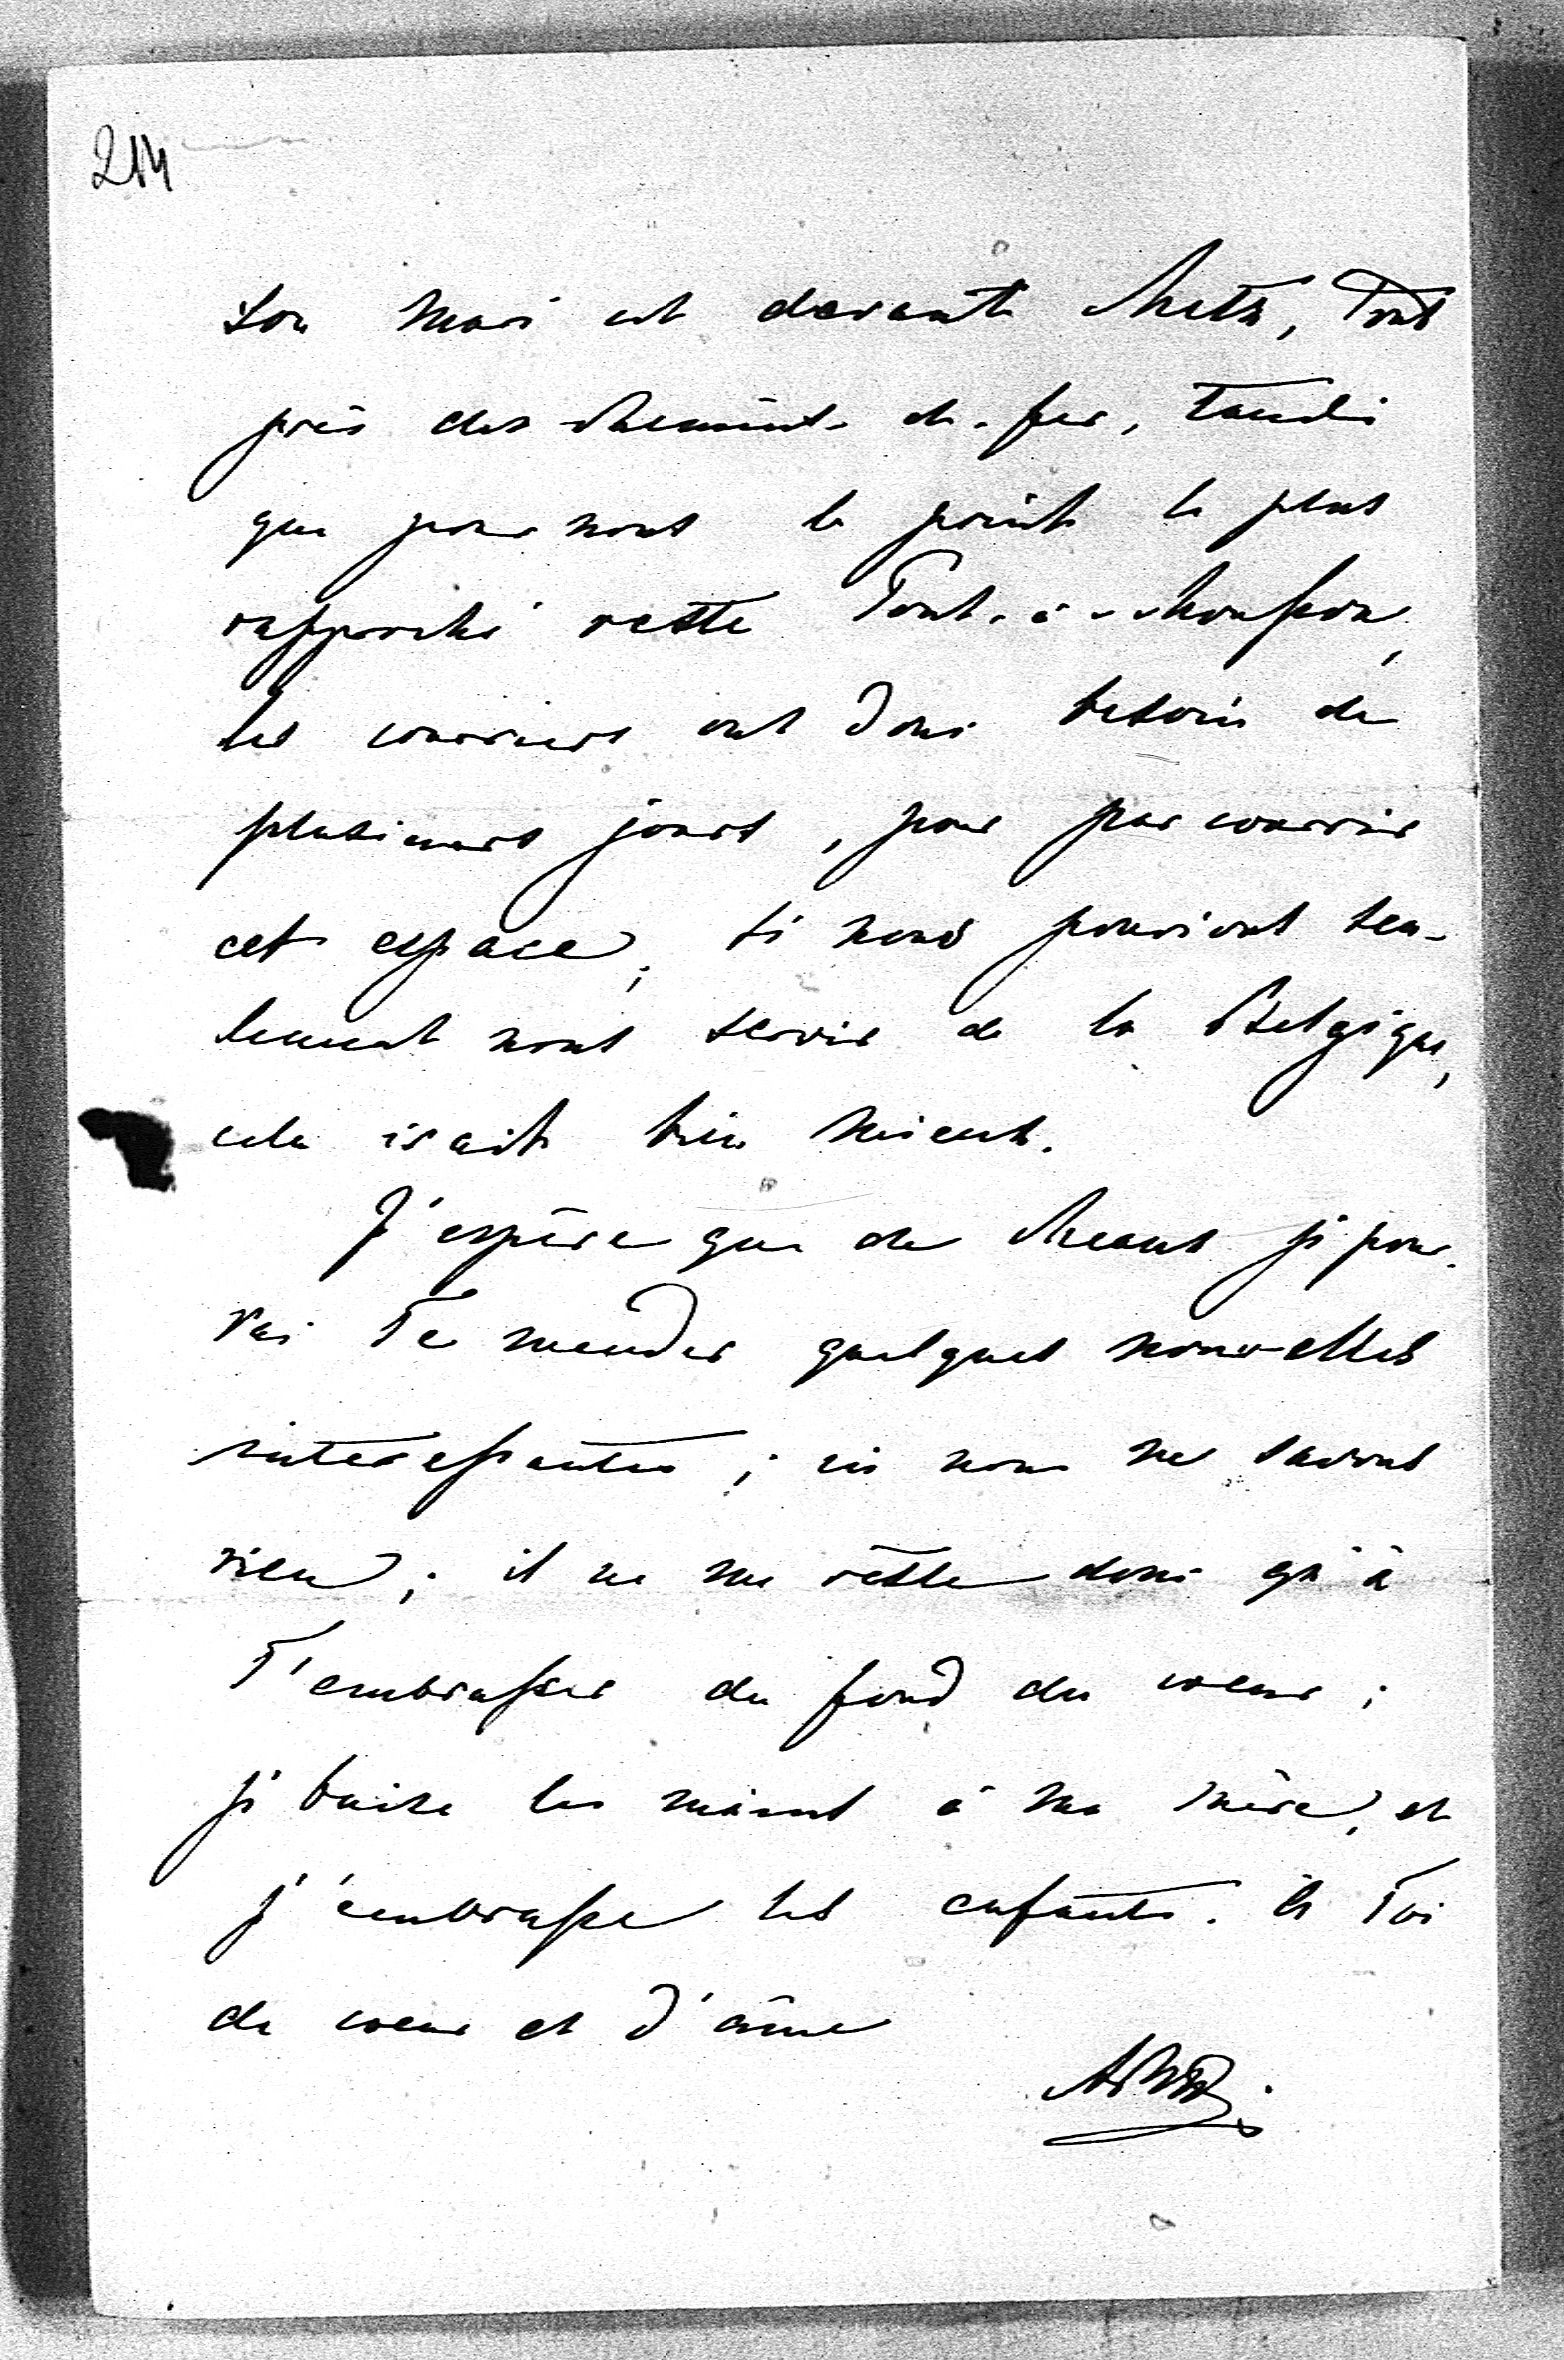 214
son mari est devant Metz, tout
près des chemins-de-fer, tandis
que pour nous le point le plus
rapproché reste Pont-à-Mousson,
les courriers ont donc besoin de
plusieurs jours, pour parcourir
cet espace; si nous pouvions seu-
lement nous servir de la Belgique,
cela irait bien mieux.
J'espère que de Meaux je pour-
rai Te mander quelques nouvelles
interessantes; ici nous ne savons
rien; il ne me reste donc qu'à
T'embrasser du fond du coeur;
je baise les mains à ma mère, et
j'embrasse les enfants. à Toi
de coeur et d'âme